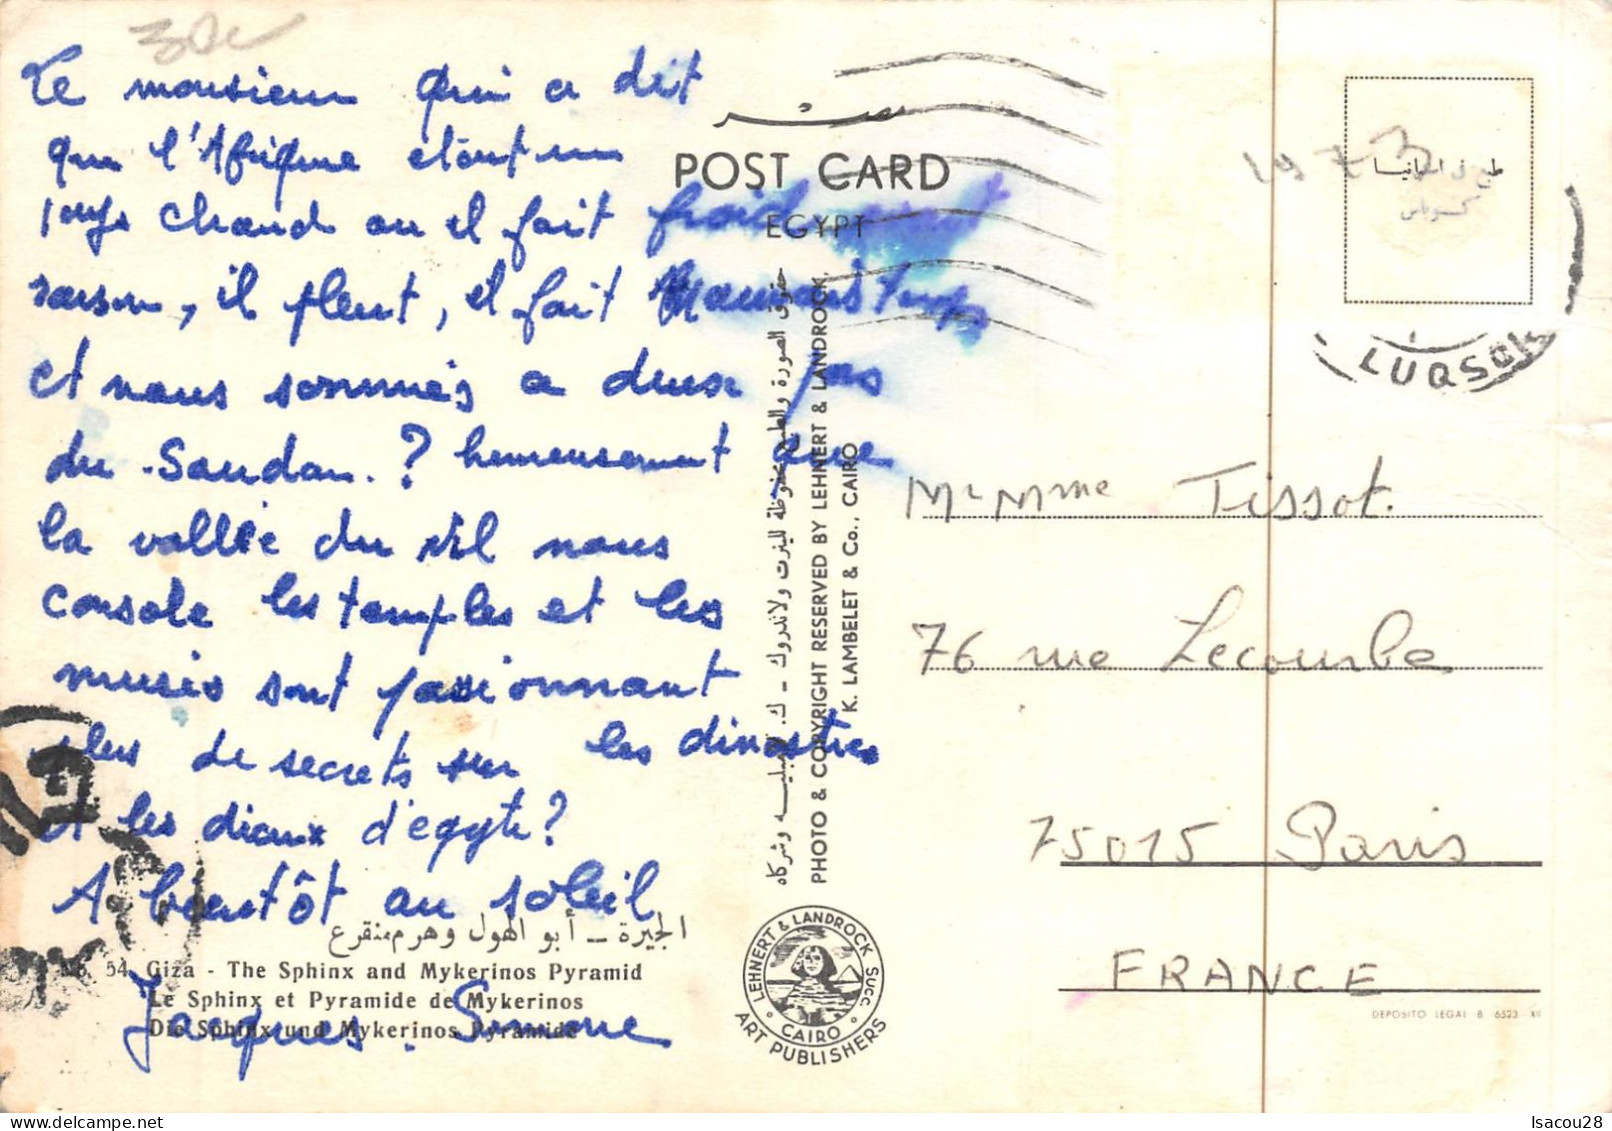 30c
Le monsieur qui a dit
que l'Afrique etait un
pays chaud ou il fait froid
saison, il pleut, il fait Mauvais temps
et nous sommes a deux pas
du Soudan.? heureusement que
la vallée du Nil nous
console les temples et les
museés sont passionnant
plus de secrets sur les dinastres
et les dieux d'egypte?
A bientôt au soleil
Jacques. Simone
الجيزة - أبو الهول وهرم منقرع
No. 54 Giza - The Sphinx and Mykerinos Pyramid
Le Sphinx et Pyramide de Mykerinos
Die Sphinx und Mykerinos Pyramide
POST CARD
EGYPT
حقوق الصورة والطبع محفوظة للينرت ولاندروك - ك. لامبليه وشركاه
PHOTO & COPYRIGHT RESERVED BY LEHNERT & LANDROCK
K. LAMBELET & Co., CAIRO
LEHNERT & LANDROCK SUCC.
CAIRO
ART PUBLISHERS
1973
LUQSOR
Mr Mme Tissot.
76 rue Lecourbe
75015 Paris
FRANCE
DEPOSITO LEGAL B 6523 XII
Isacou28